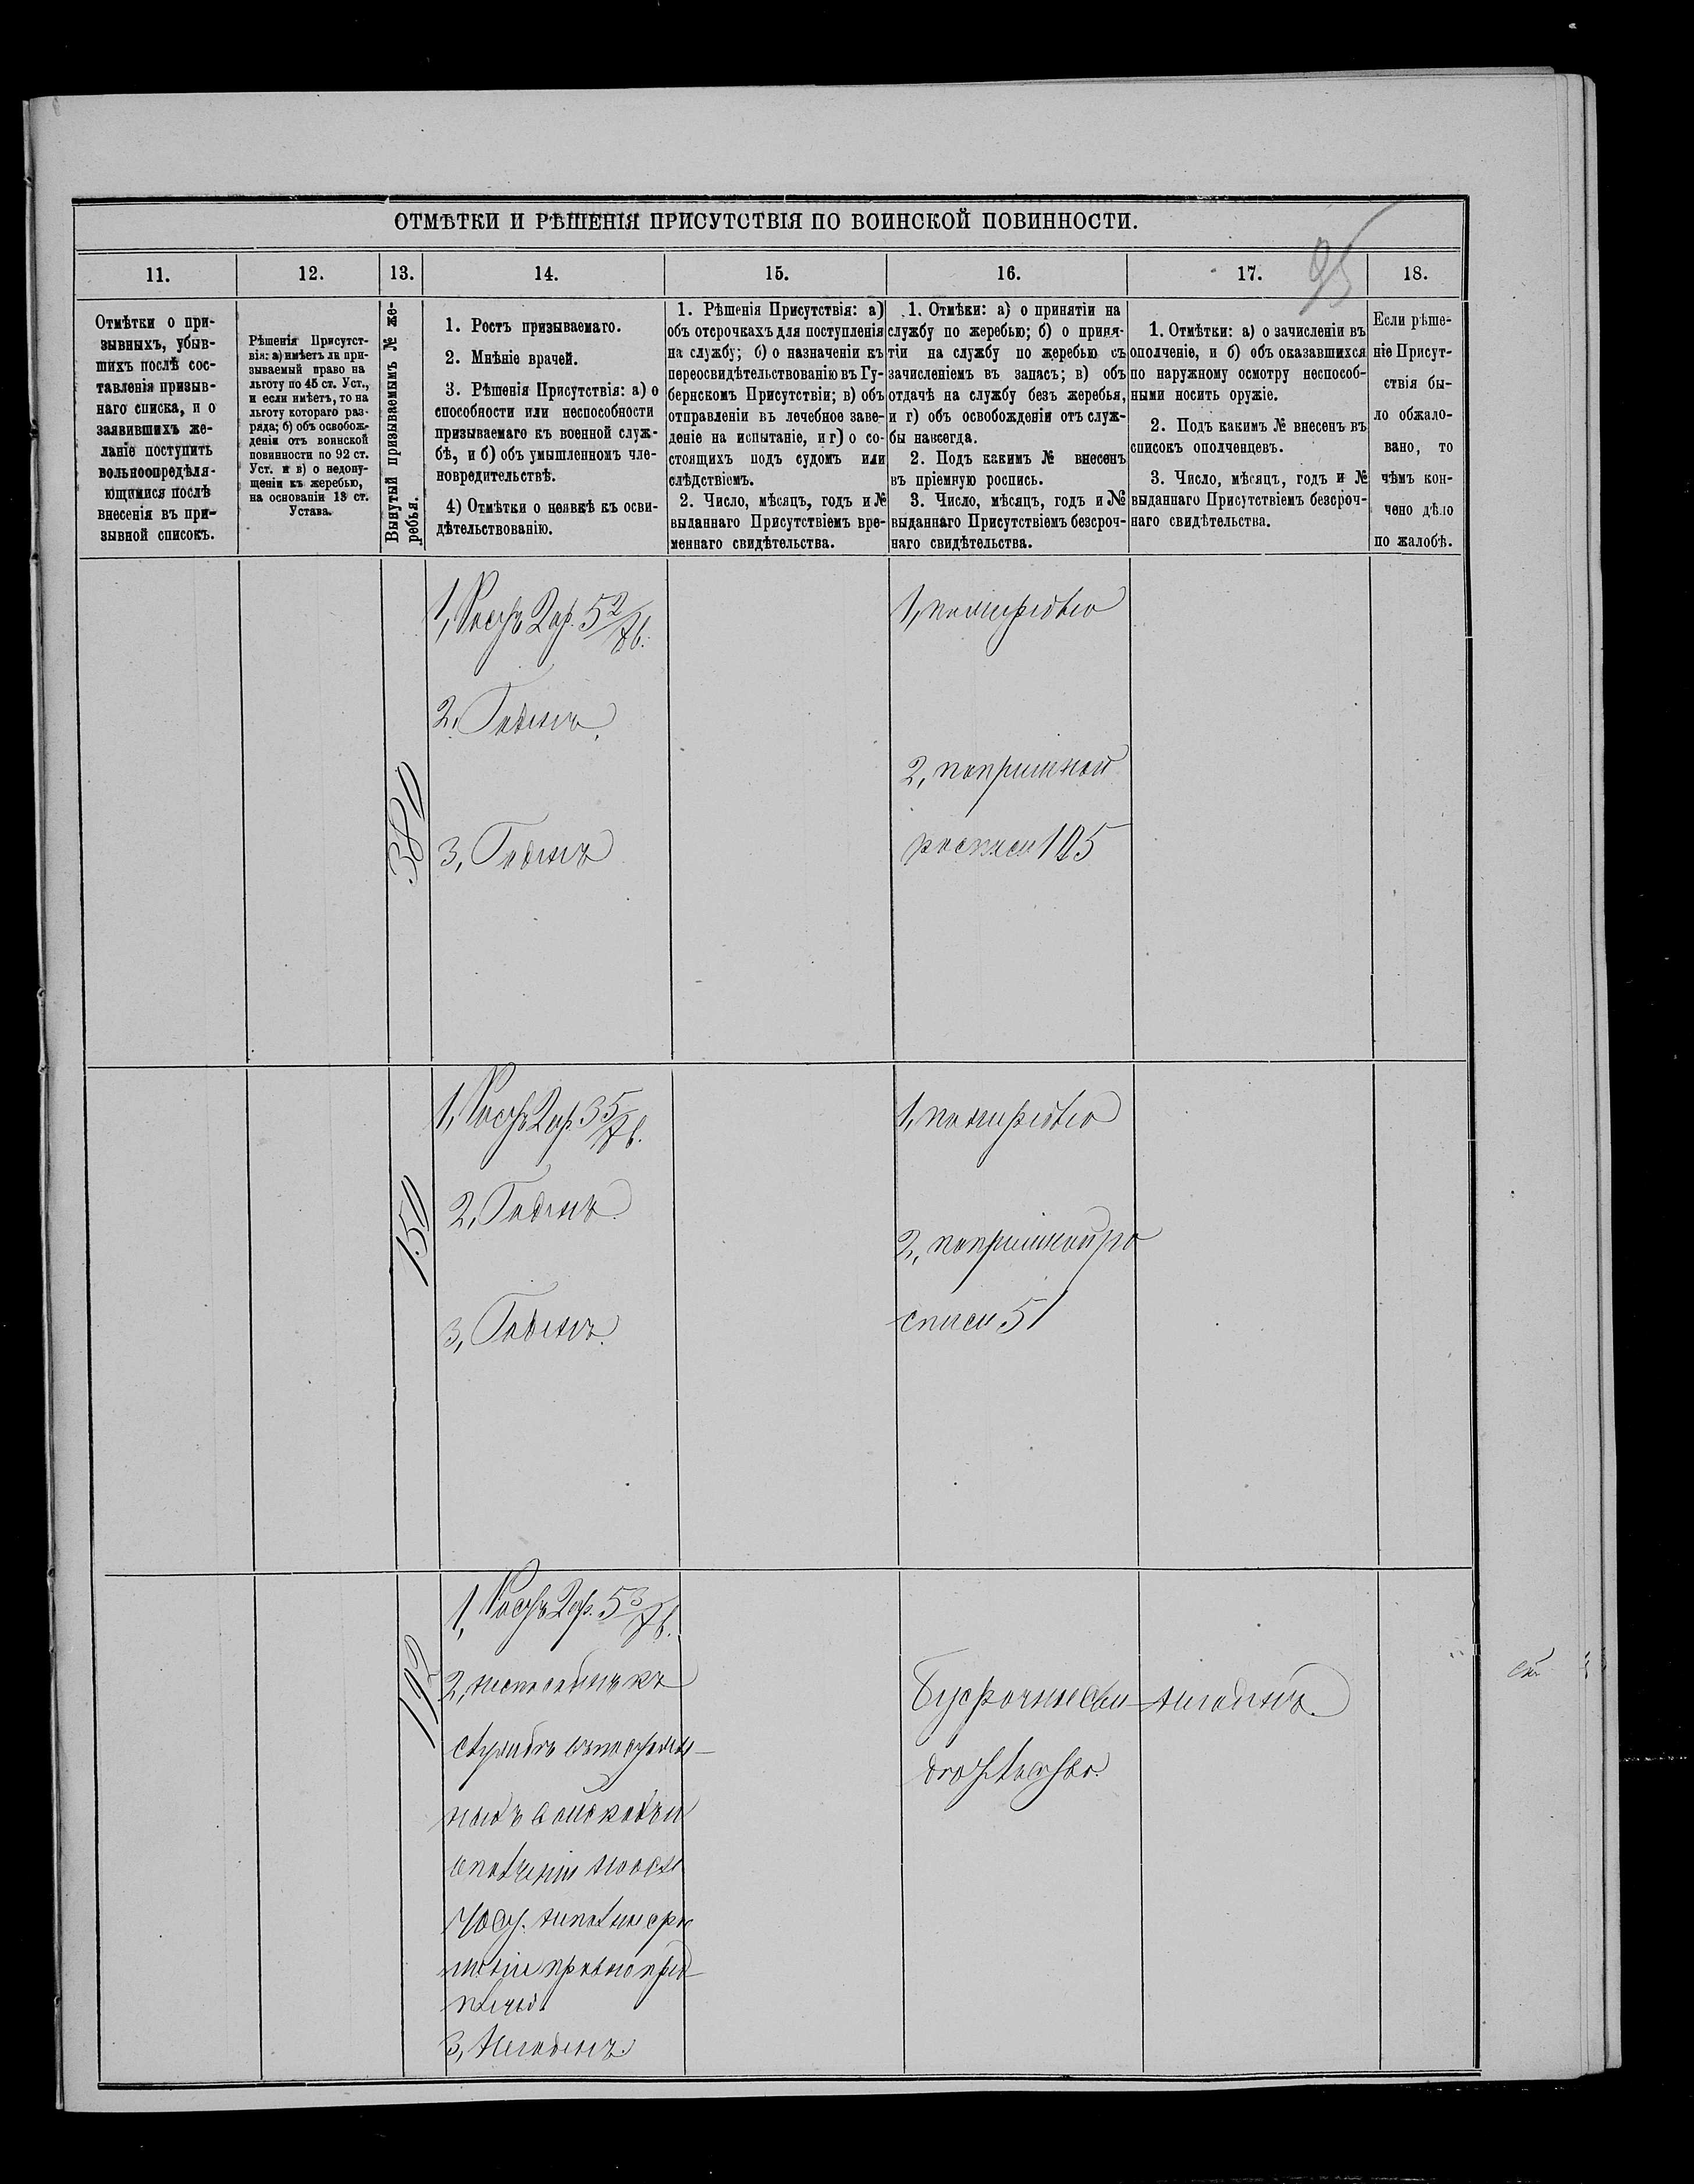 ОТМѢТКИ И РѢШЕНІЯ ПРИСУТСТВІЯ ПО ВОИНСКОЙ ПОВИННОСТИ.
95
11.
12.
13.
14.
15.
16.
17.
18.
Отмѣтки о при-
зывныхъ, убыв-
шихъ послѣ сос-
тавленія призыв-
наго списка, и о
заявившихъ же-
ланіе поступить
вольноопредѣля-
ющимися послѣ
внесенія въ при-
зывной списокъ.
Рѣшенія Присутст-
вія: а) имѣетъ ли при-
зываемый право на
льготу по 45 ст. Уст.,
и если имѣетъ, то на
льготу котораго раз-
ряда; б) объ освобож-
деніи отъ воинской
повинности по 92 ст.
Уст. и в) о недопу-
щеніи къ жеребью,
на основаніи 13 ст.
Устава.
Вынутый призываемымъ № же-
ребья.
1. Ростъ призываемаго.
2. Мнѣніе врачей.
3. Рѣшенія Присутствія: а) о
способности или неспособности
призываемаго къ военной служ-
бѣ, и б) объ умышленномъ чле-
новредительствѣ.
4) Отмѣтки о неявкѣ къ осви-
дѣтельствованію.
1. Рѣшенія Присутствія: а)
объ отсрочкахъ для поступленія
на службу; б) о назначеніи къ
переосвидѣтельствованію въ Гу-
бернскомъ Присутствіи; в) объ
отправленіи въ лечебное заве-
деніе на испытаніе, и г) о со-
стоящихъ подъ судомъ или
слѣдствіемъ.
2. Число, мѣсяцъ, годъ и №
выданнаго Присутствіемъ вре-
меннаго свидѣтельства.
1. Отмѣки: а) о принятіи на
службу по жеребью; б) о приня-
тіи на службу по жеребью съ
зачисленіемъ въ запасъ; в) объ
отдачѣ на службу безъ жеребья,
и г) объ освобожденіи отъ служ-
бы навсегда.
2. Подъ какимъ № внесенъ
въ пріемную роспись.
3. Число, мѣсяцъ, годъ и №
выданнаго Присутствіемъ безсроч-
наго свидѣтельства.
1. Отмѣтки: а) о зачисленіи въ
ополченіе, и б) объ оказавшихся
по наружному осмотру неспособ-
ными носить оружіе.
2. Подъ какимъ № внесенъ въ
списокъ ополченцевъ.
3. Число, мѣсяцъ, годъ и №
выданнаго Присутствіемъ безсроч-
наго свидѣтельства.
Если рѣше-
ніе Присут-
ствія бы-
ло обжало-
вано, то
чѣмъ кон-
чено дѣло
по жалобѣ.
380
1, Ростъ 2 ар. 5 2/8 в.
2, Годенъ.
3, Годенъ
1, по жеребью
2, по пріемной
росписи 105
150
1, Ростъ 2 ар. 3 5/8 в.
2, Годенъ.
3, Годенъ.
1, по жеребью
2, по пріемной ро
списи 51
192
1, Ростъ 2 ар. 5 3/8 в.
2, неспособенъ къ
службѣ въ постоян-
ныхъ войскахъ и
ополченіи
праваго пред
плечья
3, Негоденъ.
Безсрочное сви
дѣтельство.
негоденъ.